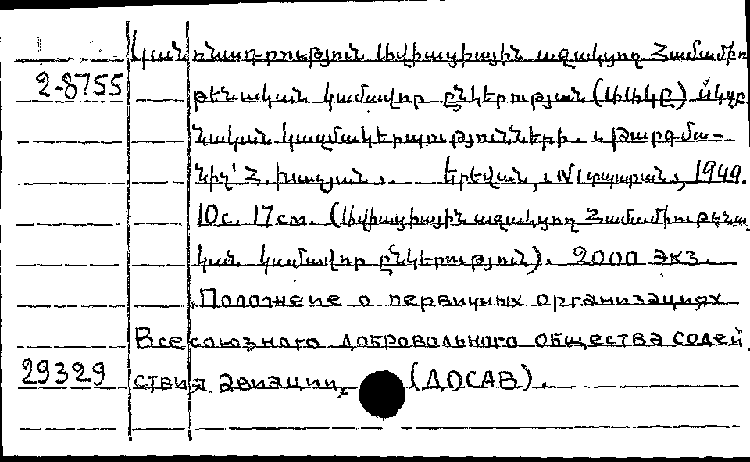 Կանոնադրություն Ավիացիային աջակցող Համամիու
2-8755 թենական կամավոր ընկերության (ԱԱԿԸ) սկզբ
նական կազմակերպությունների. Թարգմա-
նիչ՝ Հ. Խաչյան. Երևան, տպարան, 1949.
10с. 17см. (Ավիացիային աջակցող Համամիութենա
կան կամավոր ընկերություն). 2000 экз.
Положение о первичных организациях
Всесоюзного добровольного общества содей
29329 ствия авиации. (ДОСАВ).